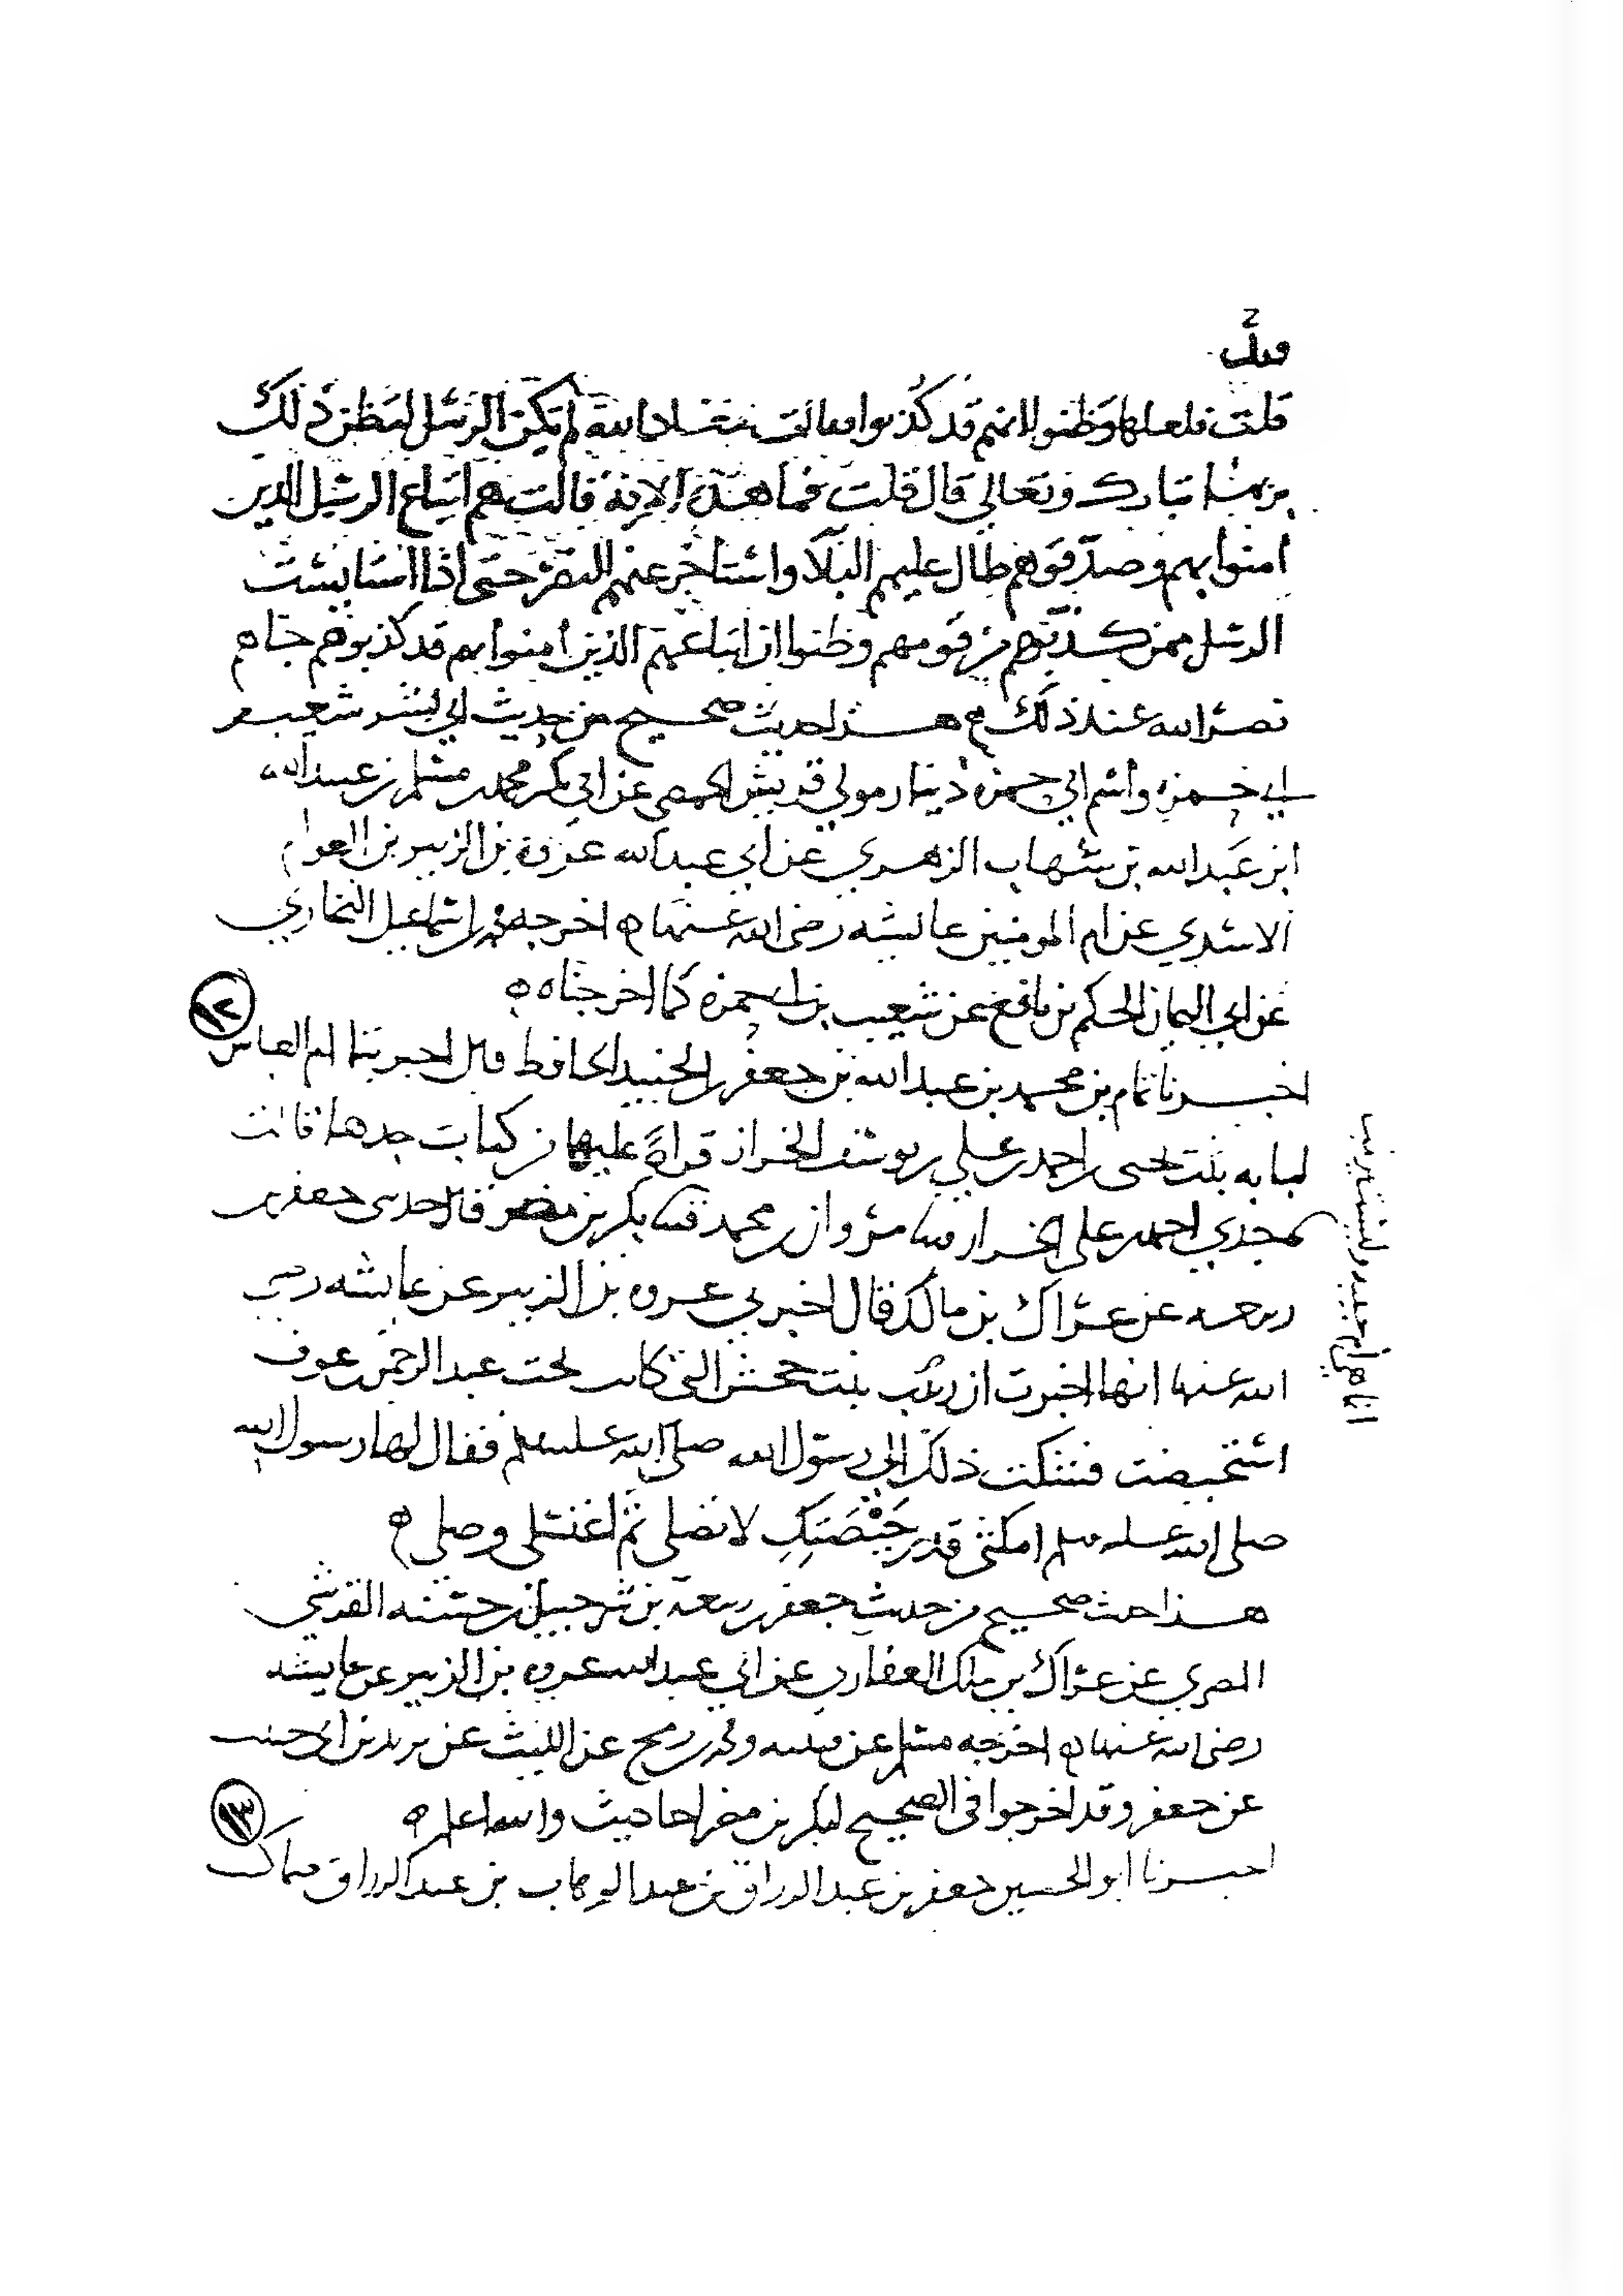 قلت فلعلها وظنوا انهم قد كذبوا فقالت معاذ الله لم تكن الرسل لتظن ذلك
بربها تبارك وتعالى قال قلت فما هذه الاية قالت هم اتباع الرسل الذين
امنوا بهم وصدقوهم طال عليهم البلا واستاخر عنهم النصر حتى اذا استايست
الرسل ممن كذبهم من قومهم وظنوا ان اتباعهم الذين امنوا بهم قد كذبوهم جاهم
نصر الله عند ذلك هذا حديث صحيح من حديث ابي بشر شعيب بن
ابي حمزة واسم ابي حمزة دينار مولى قريش الحمصي عن ابي بكر محمد بن مسلم بن عبيد الله
ابن عبد الله بن شهاب الزهري عن ابي عبد الله عروة بن الزبير بن العوام
الاسدي عن ام المومنين عائشه رضى الله عنها ه اخرجه محمد بن اسماعيل البخاري
عن ابي اليمان الحكم بن نافع عن شعيب بن ابي حمزه كما اخرجناه ه
١٢
اخبرنا تمام بن محمد بن عبد الله بن جعفر بن الجنيد الحافظ قال اخبرتنا ام العباس
لبابه بنت يحيى بن احمد بن علي بن يوسف الخراز قراة عليها من كتاب جدها قالت
جدي احمد بن علي الخراز ثنا مروان بن محمد ثنا بكر بن مضر قال حدثني جعفر بن
ربيعه عن عراك بن مالك قال اخبرني عروه بن الزبير عن عائشه رضي
الله عنها انها اخبرت ان زينب بنت جحش التي كانت تحت عبد الرحمن بن عوف
استحيضت فشكت ذلك الى رسول الله صلى الله عليه وسلم فقال لها رسول الله
صلى الله عليه وسلم امكثي قدر حيضتك لا تصلي ثم اغتسلي وصلي ه
هذا حديث صحيح من حديث جعفر بن ربيعة بن شرحبيل بن حسنه القرشي
المصري عن عراك بن ملك الغفاري عن ابي عبد الله عروه بن الزبير عن عايشه
رضى الله عنها ه اخرجه مسلم عن قتيبه ومحمد بن رمح عن الليث عن يزيد بن ابي حبيب
عن جعفر وقد اخرجوا في الصحيح لبكر بن مضر احاديث والله اعلم ه
١٣
اخبرنا ابو الحسين جعفر بن عبد الرزاق بن عبد الوهاب بن عبد الرزاق